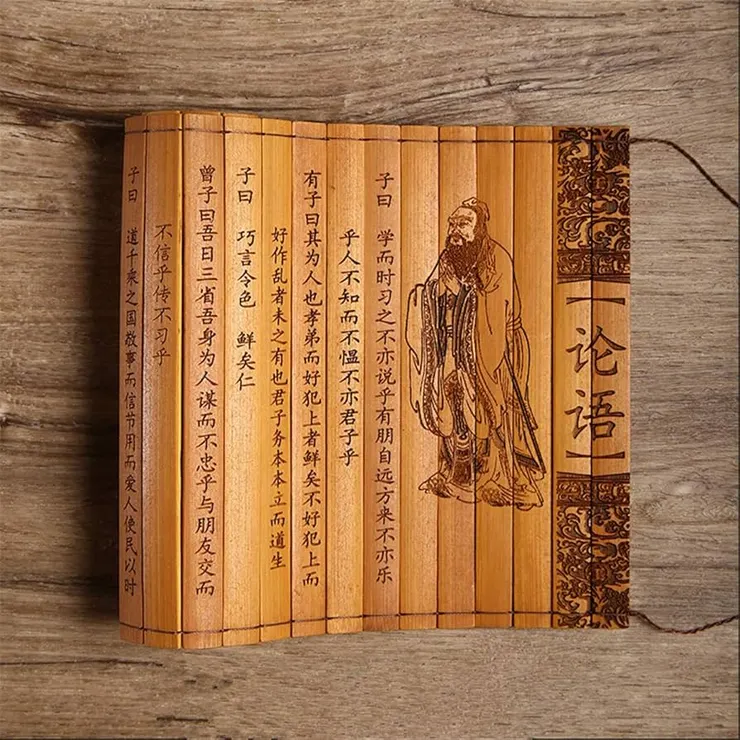 【论语】
子曰 学而时习之不亦说乎有朋自远方来不亦乐
乎人不知而不愠不亦君子乎
有子曰其为人也孝弟而好犯上者鲜矣不好犯上而
好作乱者未之有也君子务本本立而道生
子曰 巧言令色 鲜矣仁
曾子曰吾日三省吾身为人谋而不忠乎与朋友交而
不信乎传不习乎
子曰 道千乘之国敬事而信节用而爱人使民以时